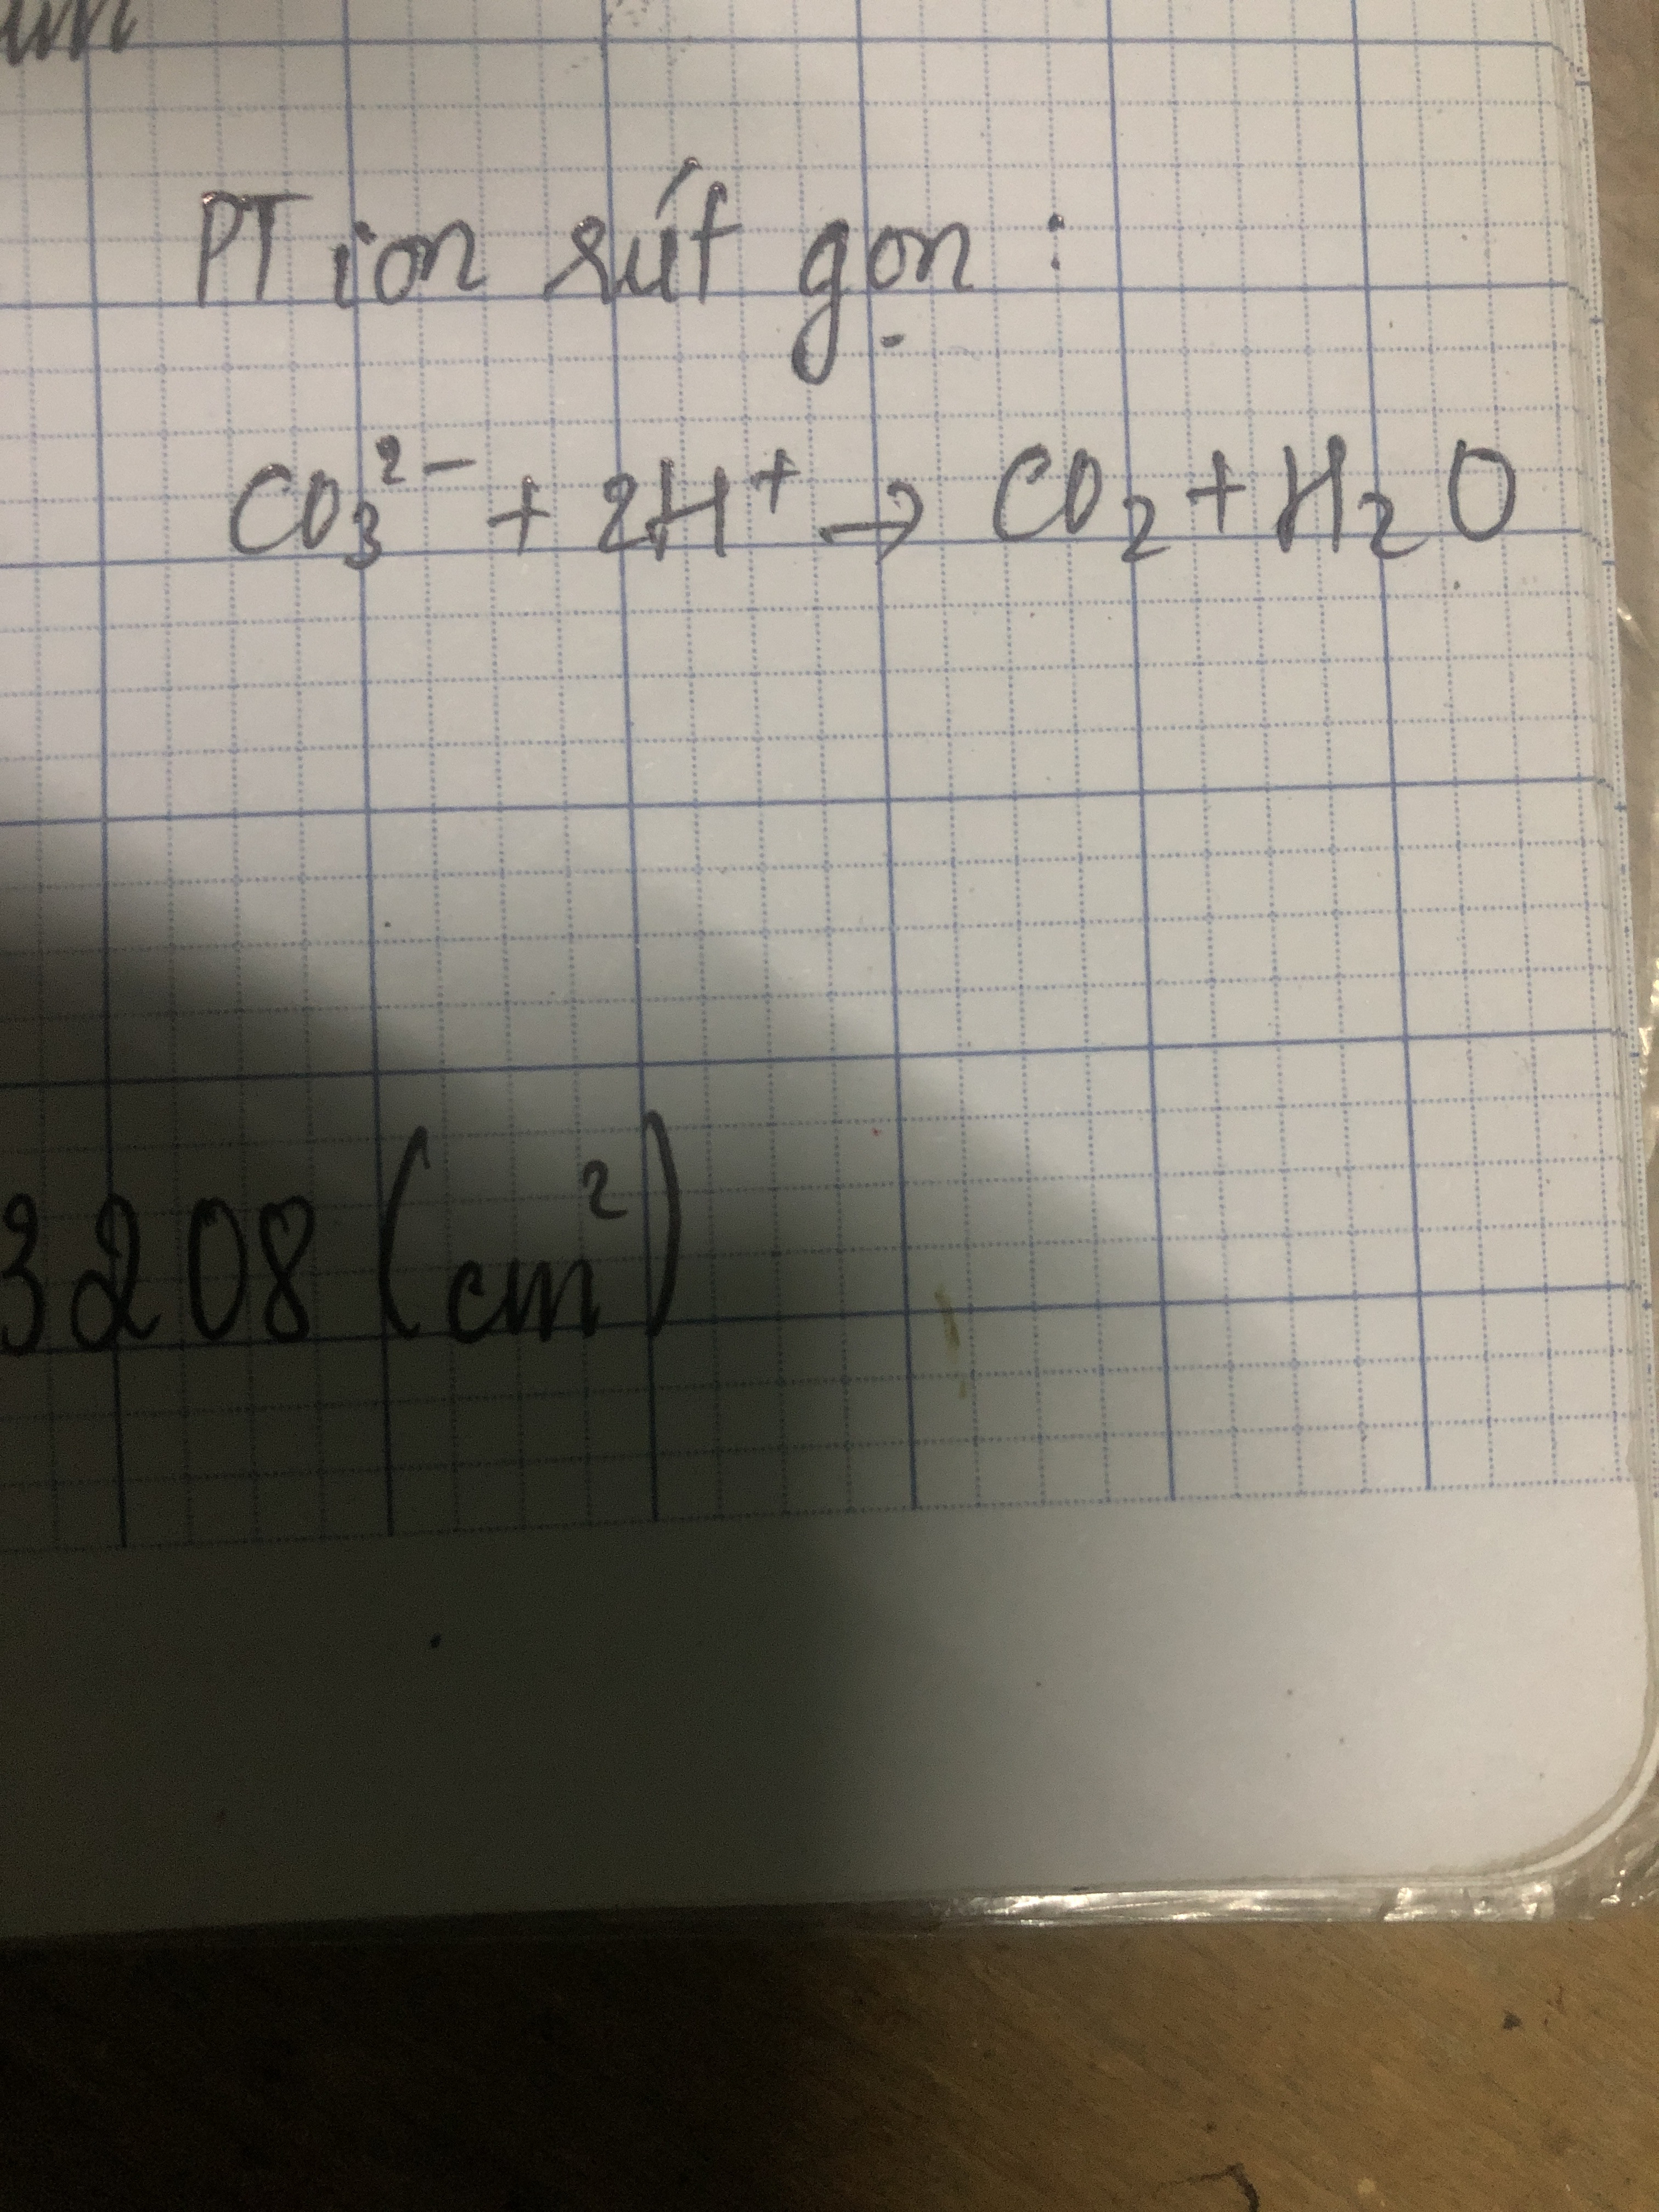 PT ion rút gọn :
CO₃²⁻ + 2H⁺ → CO₂ + H₂O
3208 (cm²)